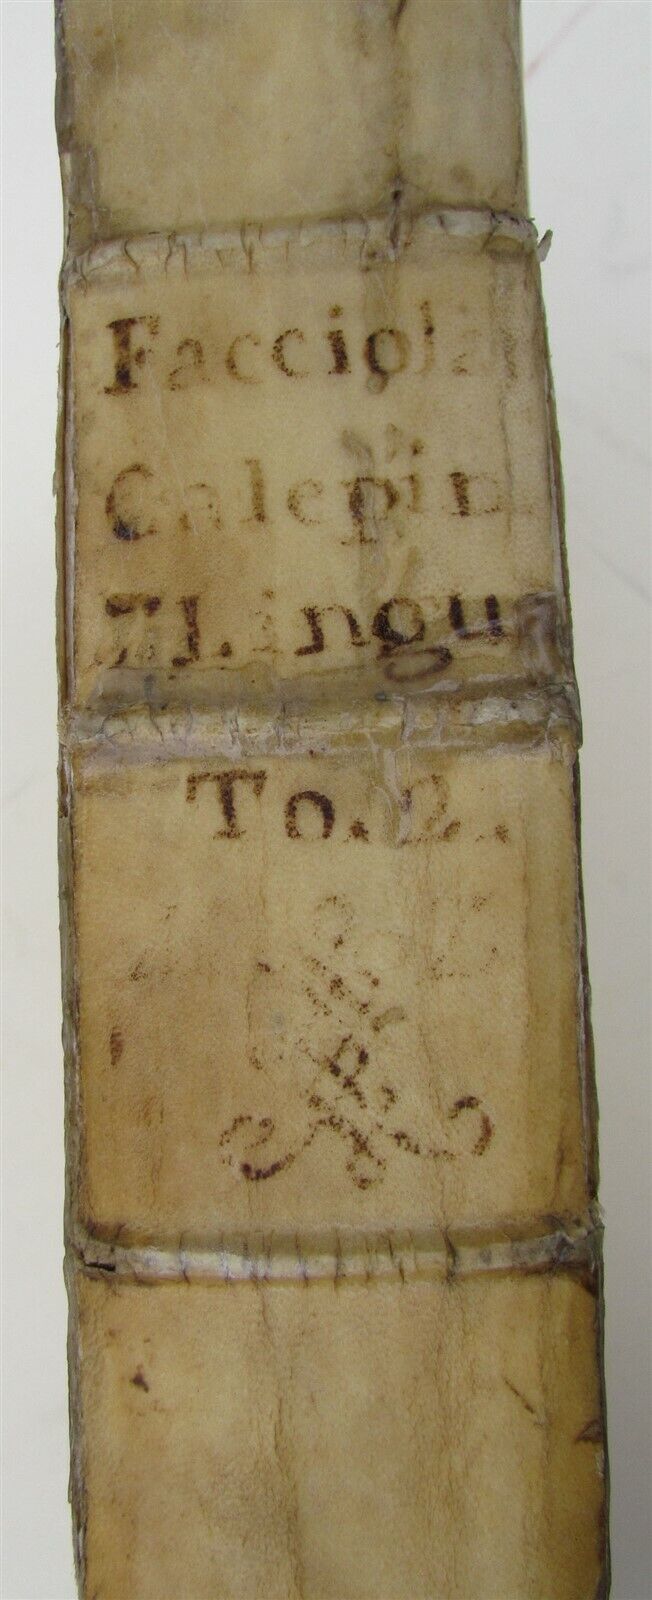 Facciola
Calepin
7 Lingu
To. 2.